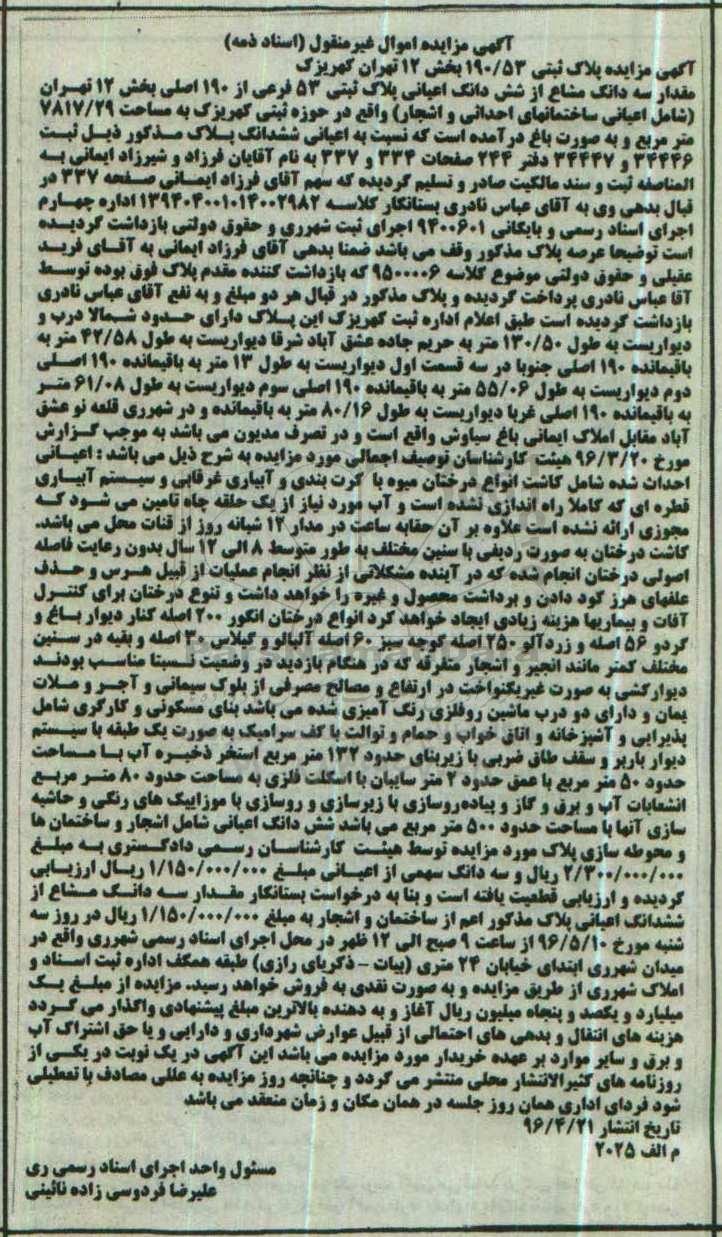 آگهی مزایده اموال غیرمنقول (اسناد ذمه)
آگهی مزایده پلاک ثبتی ۱۹۰/۵۳ بخش ۱۲ تهران کهریزک
مقدار سه دانگ مشاع از شش دانگ اعیانی پلاک ثبتی ۵۳ فرعی از ۱۹۰ اصلی بخش ۱۲ تهران
(شامل اعیانی ساختمانهای احداثی و اشجار) واقع در حوزه ثبتی کهریزک به مساحت ۷۸۱۷/۲۹
متر مربع و به صورت باغ درآمده است که نسبت به اعیانی ششدانگ پلاک مذکور ذیل ثبت
۳۴۴۴۶ و ۳۴۴۴۷ دفتر ۲۴۴ صفحات ۳۳۴ و ۳۳۷ به نام آقایان فرزاد و شیرزاد ایمانی به
المناصفه ثبت و سند مالکیت صادر و تسلیم گردیده که سهم آقای فرزاد ایمانی صفحه ۳۳۷ در
قبال بدهی وی به آقای عباس نادری بستانکار کلاسه ۱۳۹۴۰۴۰۰۱۰۱۴۰۰۲۹۸۲ اداره چهارم
اجرای اسناد رسمی و بایگانی ۹۴۰۰۶۰۱ اجرای ثبت شهرری و حقوق دولتی بازداشت گردیده
است توضیحا عرصه پلاک مذکور وقف می باشد ضمنا بدهی آقای فرزاد ایمانی به آقای فرید
عقیلی و حقوق دولتی موضوع کلاسه ۹۵۰۰۰۰۶ که بازداشت کننده مقدم پلاک فوق بوده توسط
آقا عباس نادری پرداخت گردیده و پلاک مذکور در قبال هر دو مبلغ و به نفع آقای عباس نادری
بازداشت گردیده است طبق اعلام اداره ثبت کهریزک این پلاک دارای حدود شمالا درب و
دیواریست به طول ۱۳۰/۵۰ متر به حریم جاده عشق آباد شرقا دیواریست به طول ۴۲/۵۸ متر به
باقیمانده ۱۹۰ اصلی جنوبا در سه قسمت اول دیواریست به طول ۱۳ متر به باقیمانده ۱۹۰ اصلی
دوم دیواریست به طول ۵۵/۰۶ متر به باقیمانده ۱۹۰ اصلی سوم دیواریست به طول ۶۱/۰۸ متر
به باقیمانده ۱۹۰ اصلی غربا دیواریست به طول ۸۰/۱۶ متر به باقیمانده و در شهرری قلعه نو عشق
آباد مقابل املاک ایمانی باغ سیاوش واقع است و در تصرف مدیون می باشد به موجب گزارش
مورخ ۹۶/۳/۲۰ هیئت کارشناسان توصیف اجمالی مورد مزایده به شرح ذیل می باشد : اعیانی
احداث شده شامل کاشت انواع درختان میوه با کرت بندی و آبیاری غرقابی و سیستم آبیاری
قطره ای که کاملا راه اندازی نشده است و آب مورد نیاز از یک حلقه چاه تامین می شود که
مجوزی ارائه نشده است علاوه بر آن حقابه ساعت در مدار ۱۲ شبانه روز از قنات محل می باشد.
کاشت درختان به صورت ردیفی با سنین مختلف به طور متوسط ۸ الی ۱۲ سال بدون رعایت فاصله
اصولی درختان انجام شده که در آینده مشکلاتی از نظر انجام عملیات از قبیل هرس و حذف
علفهای هرز کود دادن و برداشت محصول و غیره را خواهد داشت و تنوع درختان برای کنترل
آفات و بیماریها هزینه زیادی ایجاد خواهد کرد انواع درختان انگور ۲۰۰ اصله کنار دیوار باغ و
گردو ۵۶ اصله و زردآلو ۲۵۰ اصله گوجه سبز ۶۰ اصله آلبالو و گیلاس ۳۰ اصله و بقیه در سنین
مختلف کمتر مانند انجیر و اشجار متفرقه که در هنگام بازدید در وضعیت نسبتا مناسب بودند
دیوارکشی به صورت غیریکنواخت در ارتفاع و مصالح مصرفی از بلوک سیمانی و آجر و ملات
یمان و دارای دو درب ماشین روفلزی رنگ آمیزی شده می باشد بنای مسکونی و کارگری شامل
پذیرایی و آشپزخانه و اتاق خواب و حمام و توالت با کف سرامیک به صورت یک طبقه با سیستم
دیوار باربر و سقف طاق ضربی با زیربنای حدود ۱۳۲ متر مربع استخر ذخیره آب با مساحت
حدود ۵۰ متر مربع با عمق حدود ۲ متر سایبان با اسکلت فلزی به مساحت حدود ۸۰ متر مربع
انشعابات آب و برق و گاز و پیاده‌روسازی با زیرسازی و روسازی با موزاییک های رنگی و حاشیه
سازی آنها با مساحت حدود ۵۰۰ متر مربع می باشد شش دانگ اعیانی شامل اشجار و ساختمان ها
و محوطه سازی پلاک مورد مزایده توسط هیئت کارشناسان رسمی دادگستری به مبلغ
۲/۳۰۰/۰۰۰/۰۰۰ ریال و سه دانگ سهمی از اعیانی مبلغ ۱/۱۵۰/۰۰۰/۰۰۰ ریال ارزیابی
گردیده و ارزیابی قطعیت یافته است و بنا به درخواست بستانکار مقدار سه دانگ مشاع از
ششدانگ اعیانی پلاک مذکور اعم از ساختمان و اشجار به مبلغ ۱/۱۵۰/۰۰۰/۰۰۰ ریال در روز سه
شنبه مورخ ۹۶/۵/۱۰ از ساعت ۹ صبح الی ۱۲ ظهر در محل اجرای اسناد رسمی شهرری واقع در
میدان شهرری ابتدای خیابان ۲۴ متری (بیات - ذکریای رازی) طبقه همکف اداره ثبت اسناد و
املاک شهرری از طریق مزایده و به صورت نقدی به فروش خواهد رسید. مزایده از مبلغ یک
میلیارد و یکصد و پنجاه میلیون ریال آغاز و به دهنده بالاترین مبلغ پیشنهادی واگذار می گردد
هزینه های انتقال و بدهی های احتمالی از قبیل عوارض شهرداری و دارایی و یا حق اشتراک آب
و برق و سایر موارد بر عهده خریدار مورد مزایده می باشد این آگهی در یک نوبت در یکی از
روزنامه های کثیرالانتشار محلی منتشر می گردد و چنانچه روز مزایده به عللی مصادف با تعطیلی
شود فردای اداری همان روز جلسه در همان مکان و زمان منعقد می باشد
تاریخ انتشار ۹۶/۴/۲۱
م الف ۲۰۲۵
مسئول واحد اجرای اسناد رسمی ری
علیرضا فردوسی زاده نائینی